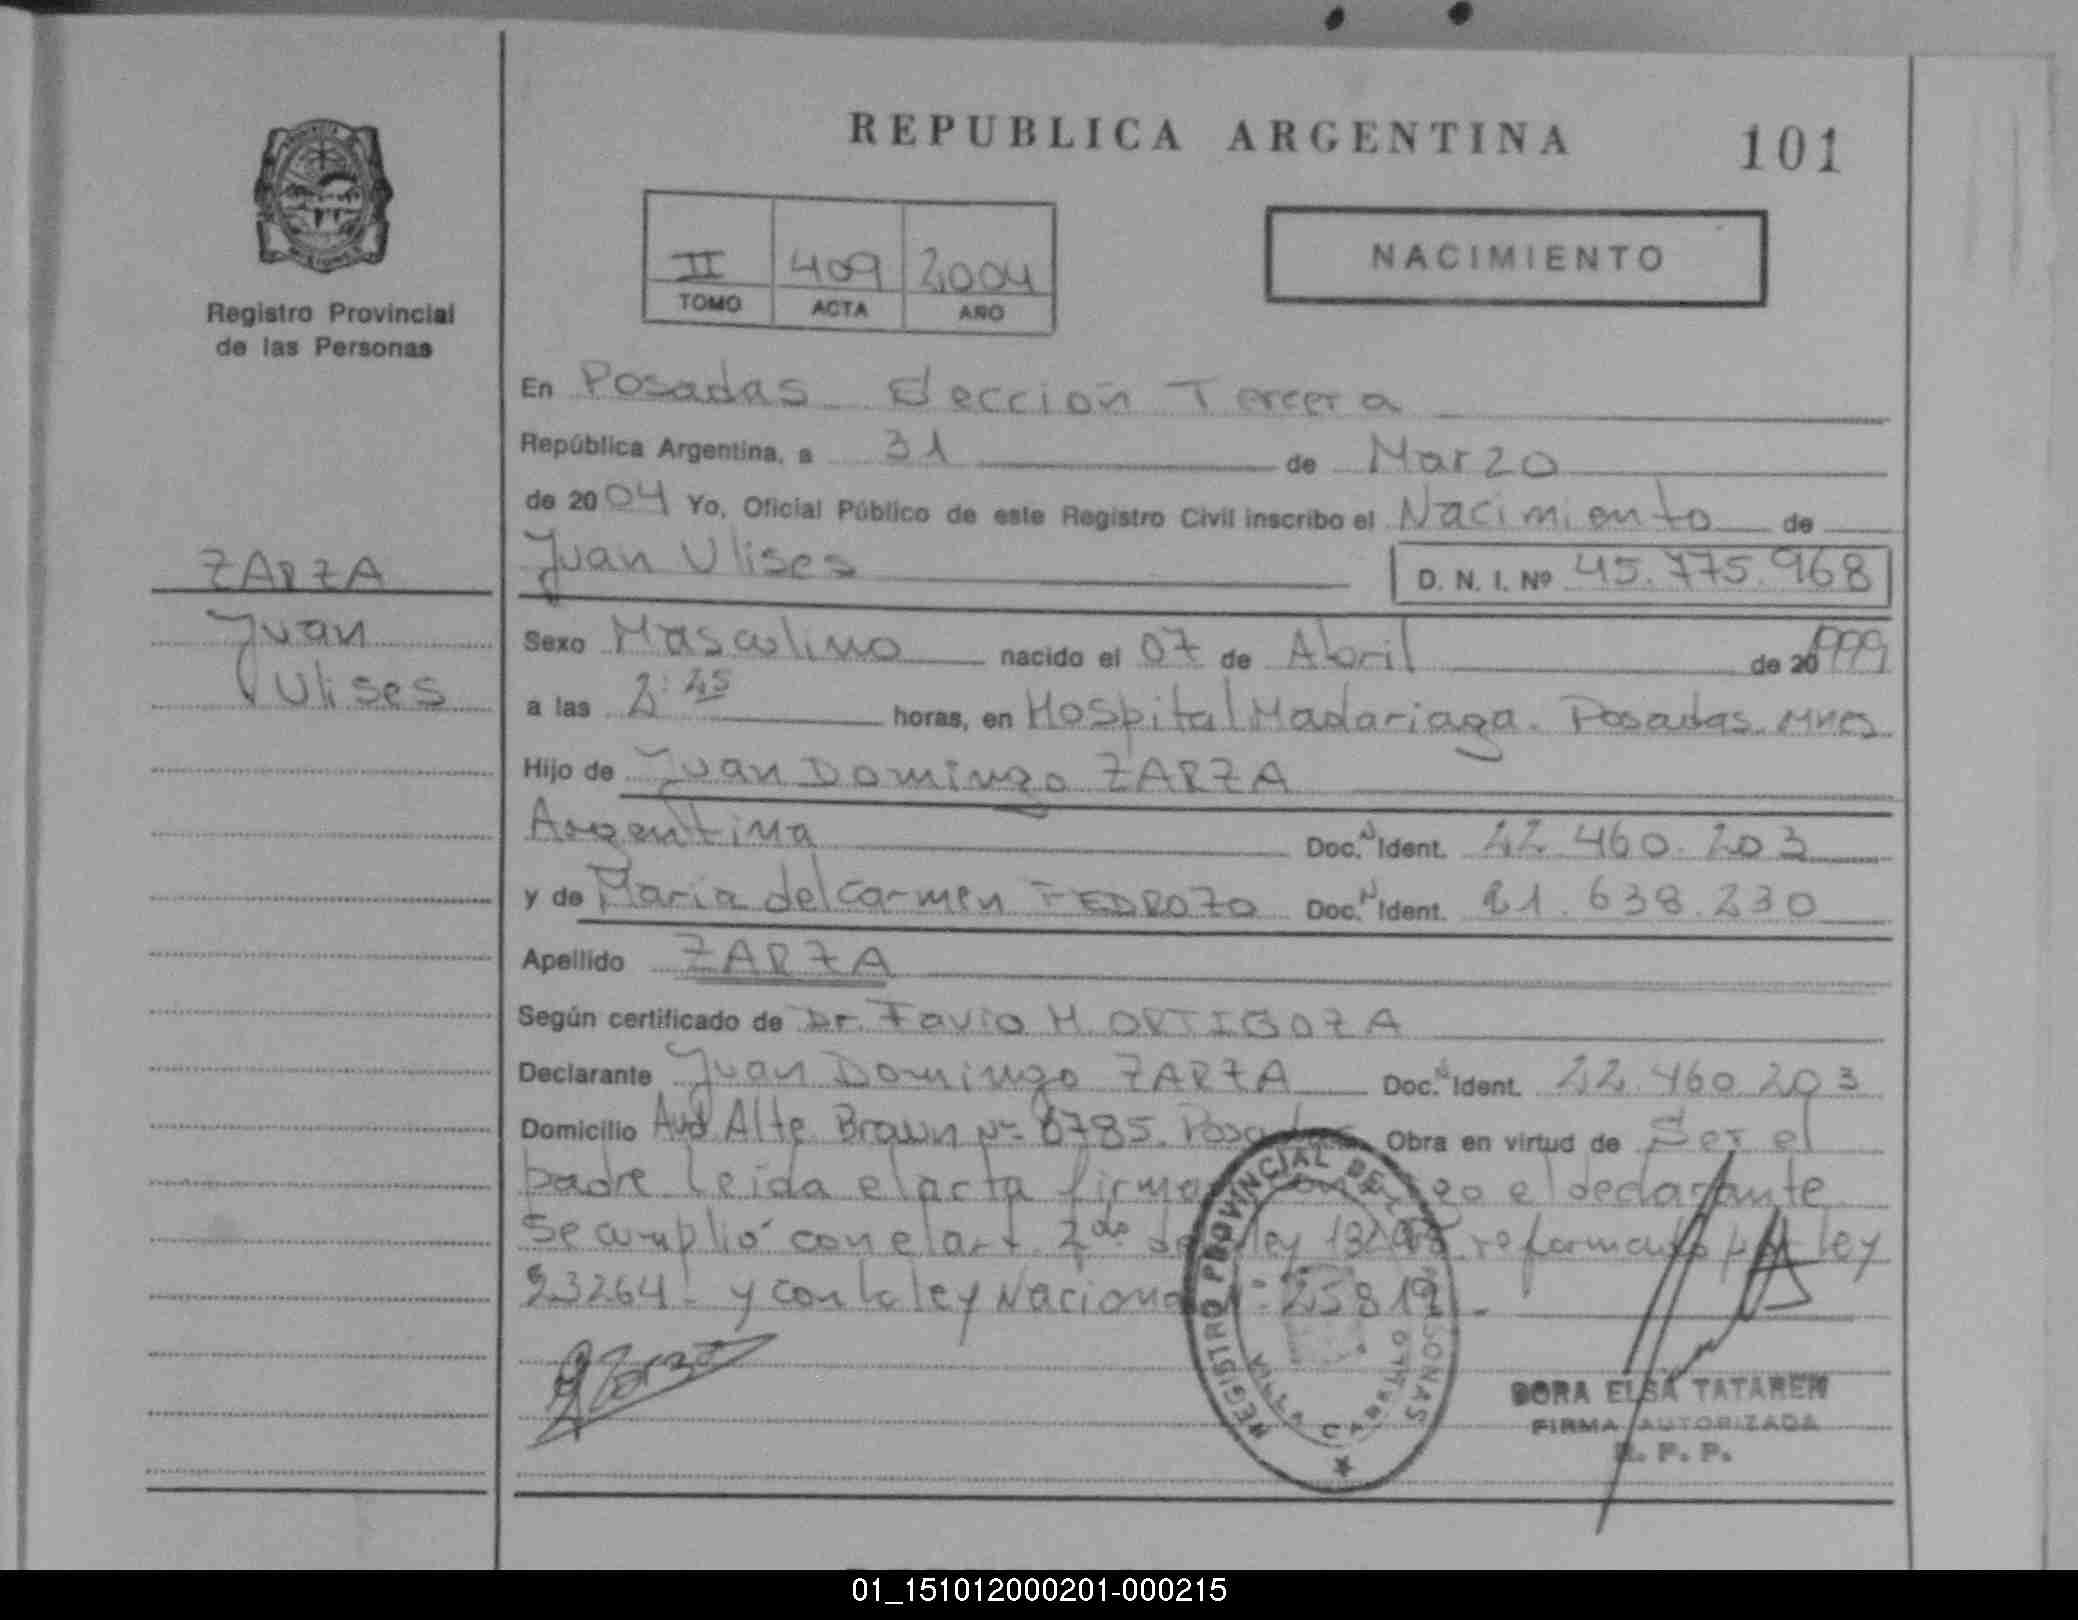 REPUBLICA ARGENTINA
101
Registro Provincial
de las Personas
II 409 2004
TOMO ACTA AÑO
NACIMIENTO
En Posadas Sección Tercera
República Argentina, a 31 de Marzo
de 2004 Yo, Oficial Público de este Registro Civil inscribo el Nacimiento de
Juan Ulises D. N. I. Nº 45.775.968
ZARZA
Juan
Ulises
Sexo Masculino nacido el 07 de Abril de 1999
a las 2:45 horas, en Hospital Madariaga. Posadas. Mnes
Hijo de Juan Domingo ZARZA
Argentina Doc. N Ident. 22.460.203
y de Maria del Carmen PEDROZO Doc. N Ident. 21.638.230
Apellido ZARZA
Según certificado de Dr. Favio H. ORTIGOZA
Declarante Juan Domingo ZARZA Doc. N Ident. 22.460.203
Domicilio Avd Alte Brown Nº 6785. Posadas Obra en virtud de Ser el
padre Leida el acta firma el declarante
se cumplió con el art. 2do ley reformado por ley
23264. y con la ley Nacional Nº 25819.
REGISTRO PROVINCIAL DE LAS PERSONAS
VILLA CABELLO
DORA ELSA TATAREN
FIRMA AUTORIZADA
R. P. P.
01_151012000201-000215